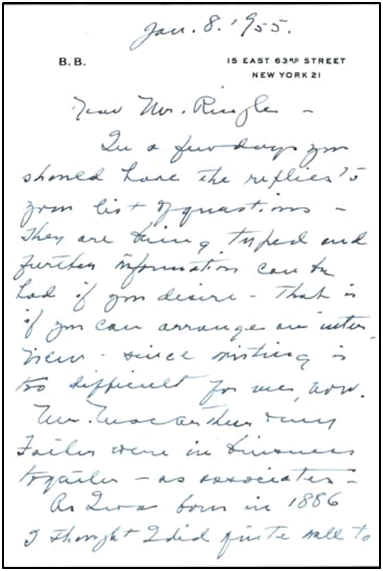 Jan. 8. 1955.
B. B.
15 EAST 63RD STREET
NEW YORK 21
Dear Mr. Ringler –
In a few days you
should have the replies to
your list of questions –
They are being typed and
further information can be
had if you desire – That is
if you can arrange an inter
view – since writing is
too difficult for me, now.
Mr. MacArthur & my
Father were in business
together – as associates –
As I was born in 1886
I thought I did quite well to